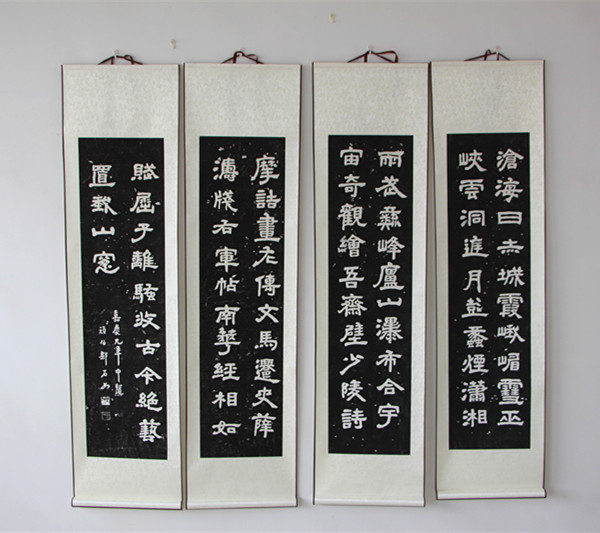 滄海日赤城霞峨嵋雪巫
峽雲洞庭月彭蠡煙瀟湘
雨武彝峰廬山瀑布合宇
宙奇觀繪吾齋壁少陵詩
摩詰畫左傳文馬遷史薛
濤牋右軍帖南華經相如
賦屈子離騷收古今絕藝
置我山窗
嘉慶九年中
頑伯鄧石如